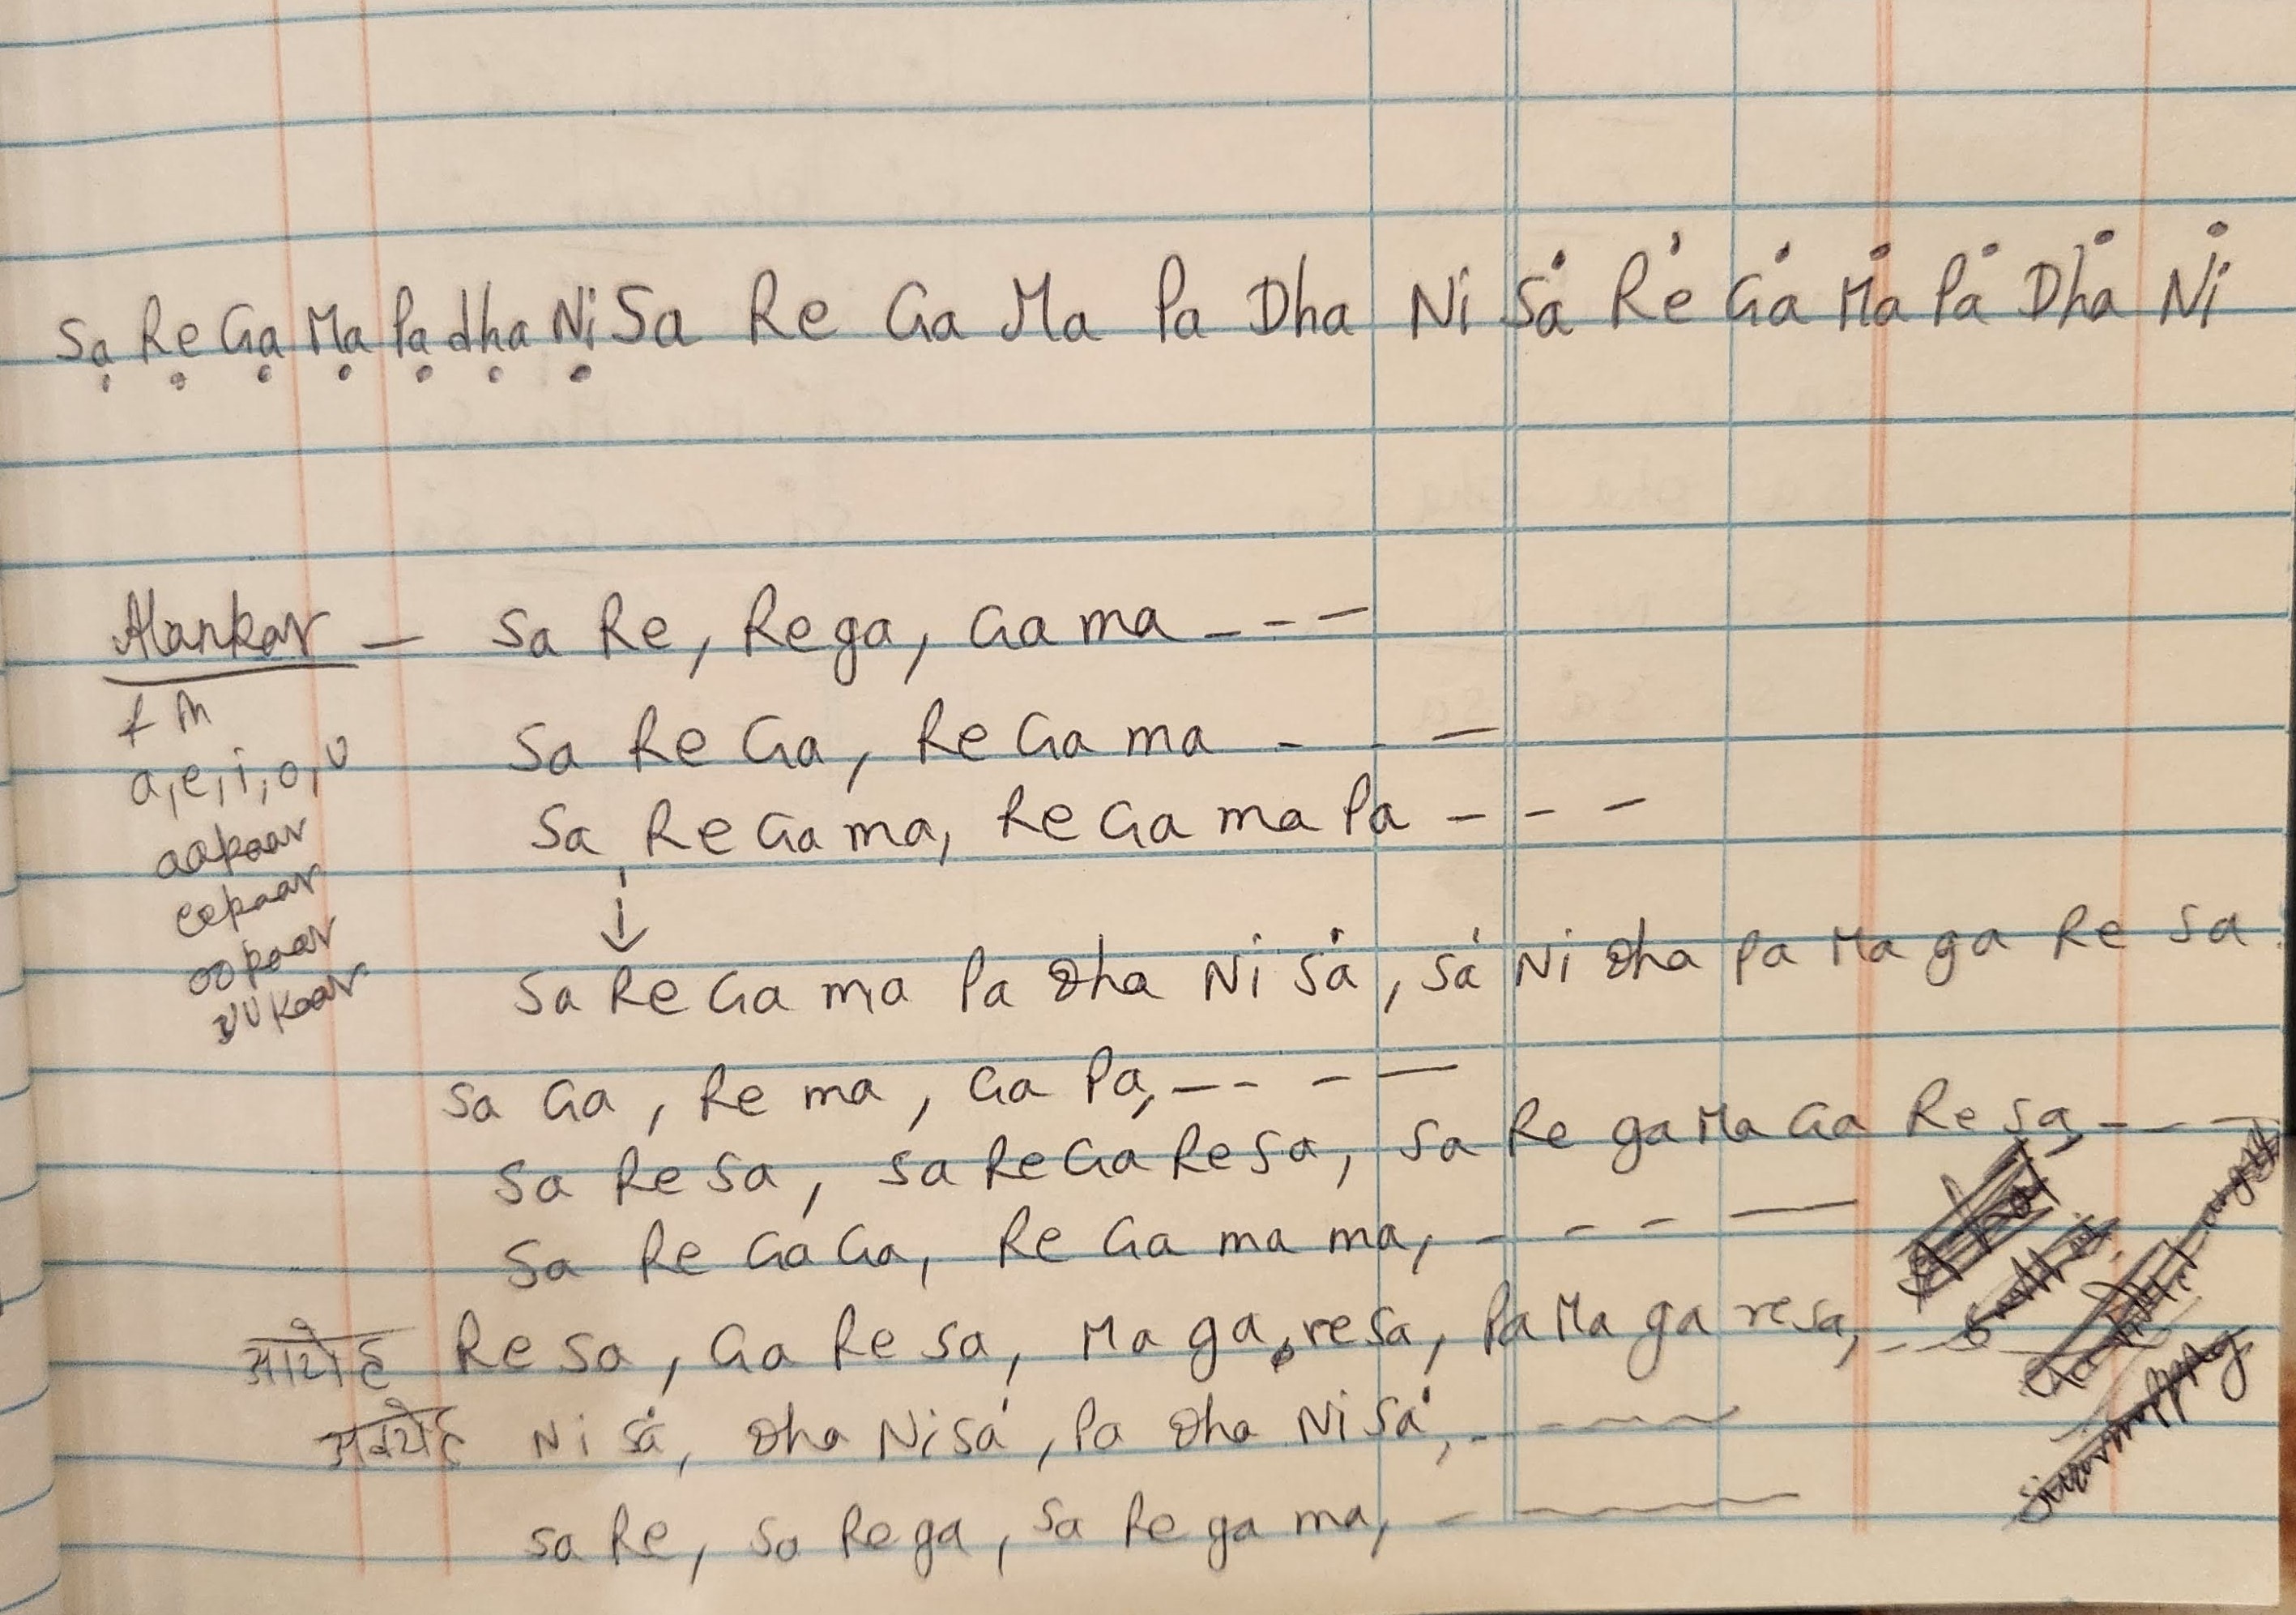 Sạ Rẹ Gạ Ṃa Pạ dhạ Nị Sa Re Ga Ma Pa Dha Ni Sȧ Rė Gȧ Ṁa Pȧ Dhȧ Ni̇
Alankar — Sa Re, Re ga, Ga ma - - -
a, e, i, o, u
Sa Re Ga, Re Ga ma - - -
aakaar
Sa Re Ga ma, Re Ga ma Pa - - -
eekaar
↓
ookaar
Sa Re Ga ma Pa Dha Ni Sȧ, Sȧ Ni Dha Pa Ma ga Re Sa
uukaar
Sa Ga, Re ma, Ga Pa, - - - -
Sa Re Sa, Sa Re Ga Re Sa, Sa Re ga Ma Ga Re Sa, - - -
Sa Re Ga Ga, Re Ga ma ma, - - - -
आरोह Re Sa, Ga Re Sa, Ma ga, re sa, Pa Ma ga re sa, - - -
अवरोह Ni Sȧ, Dha Ni Sȧ, Pa Dha Ni Sȧ, - - - -
Sa Re, Sa Re ga, Sa Re ga ma, - - -